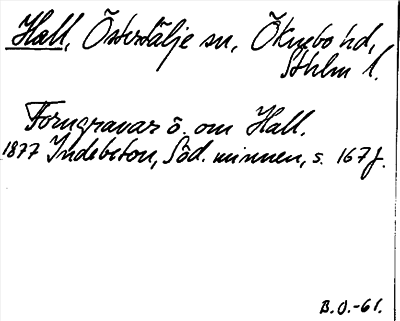 Hall, Östertälje sn, Öknebo hd,
Sthlm l.
Forngravar ö. om Hall.
1877 Indebetou, Söd. minnen, s. 167f.
B.O.-61.